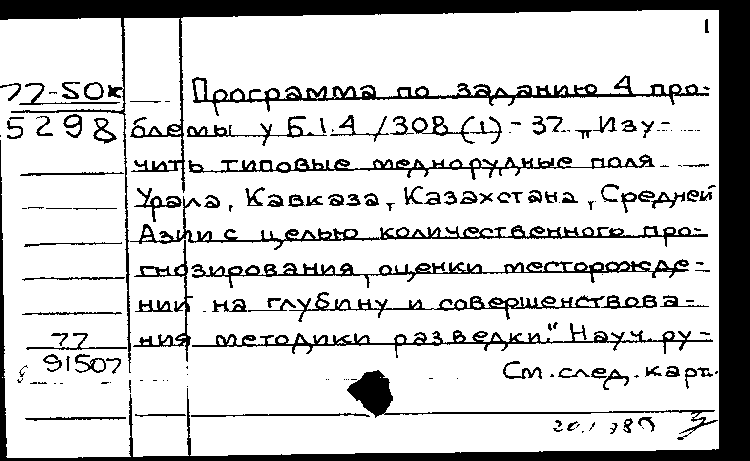 1
77-50к
5298
Программа по заданию 4 про-
блемы у Б.1.4 /308 (1) - 37 „Изу-
чить типовые меднорудные поля
Урала, Кавказа, Казахстана, Средней
Азии с целью количественного про-
гнозирования, оценки месторожде-
ний на глубину и совершенствова-
ния методики разведки." Науч. ру-
77
91507
См. след. карт.